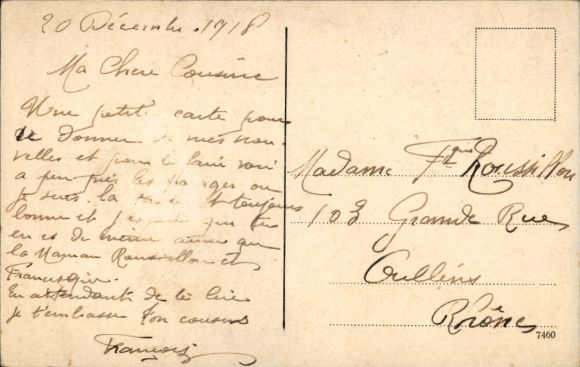 20 Décembre 1918
Ma Chere Cousine
Une petite carte pour
te donner de mes nou
velles et pour te faire voir
a peu près les parages ou
je suis. la santé est toujours
bonne et j'espère que tu
en es de même ainsi que
la Maman Roussillon et
Francisque
En attendant de te lire
je t'embrasse Ton cousin
François
Madame Fque Roussillon
103 Grande Rue
Oullins
Rhône
7460